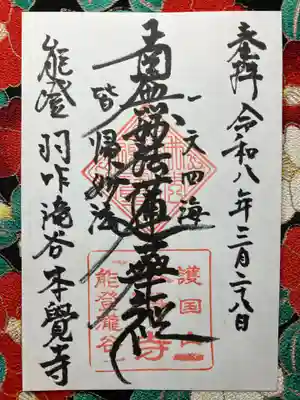 奉拝 令和八年三月二八日
一天四海
南無妙法蓮華経
皆帰妙法
能登 羽咋滝谷本覺寺
護国山
寺
能登瀧谷